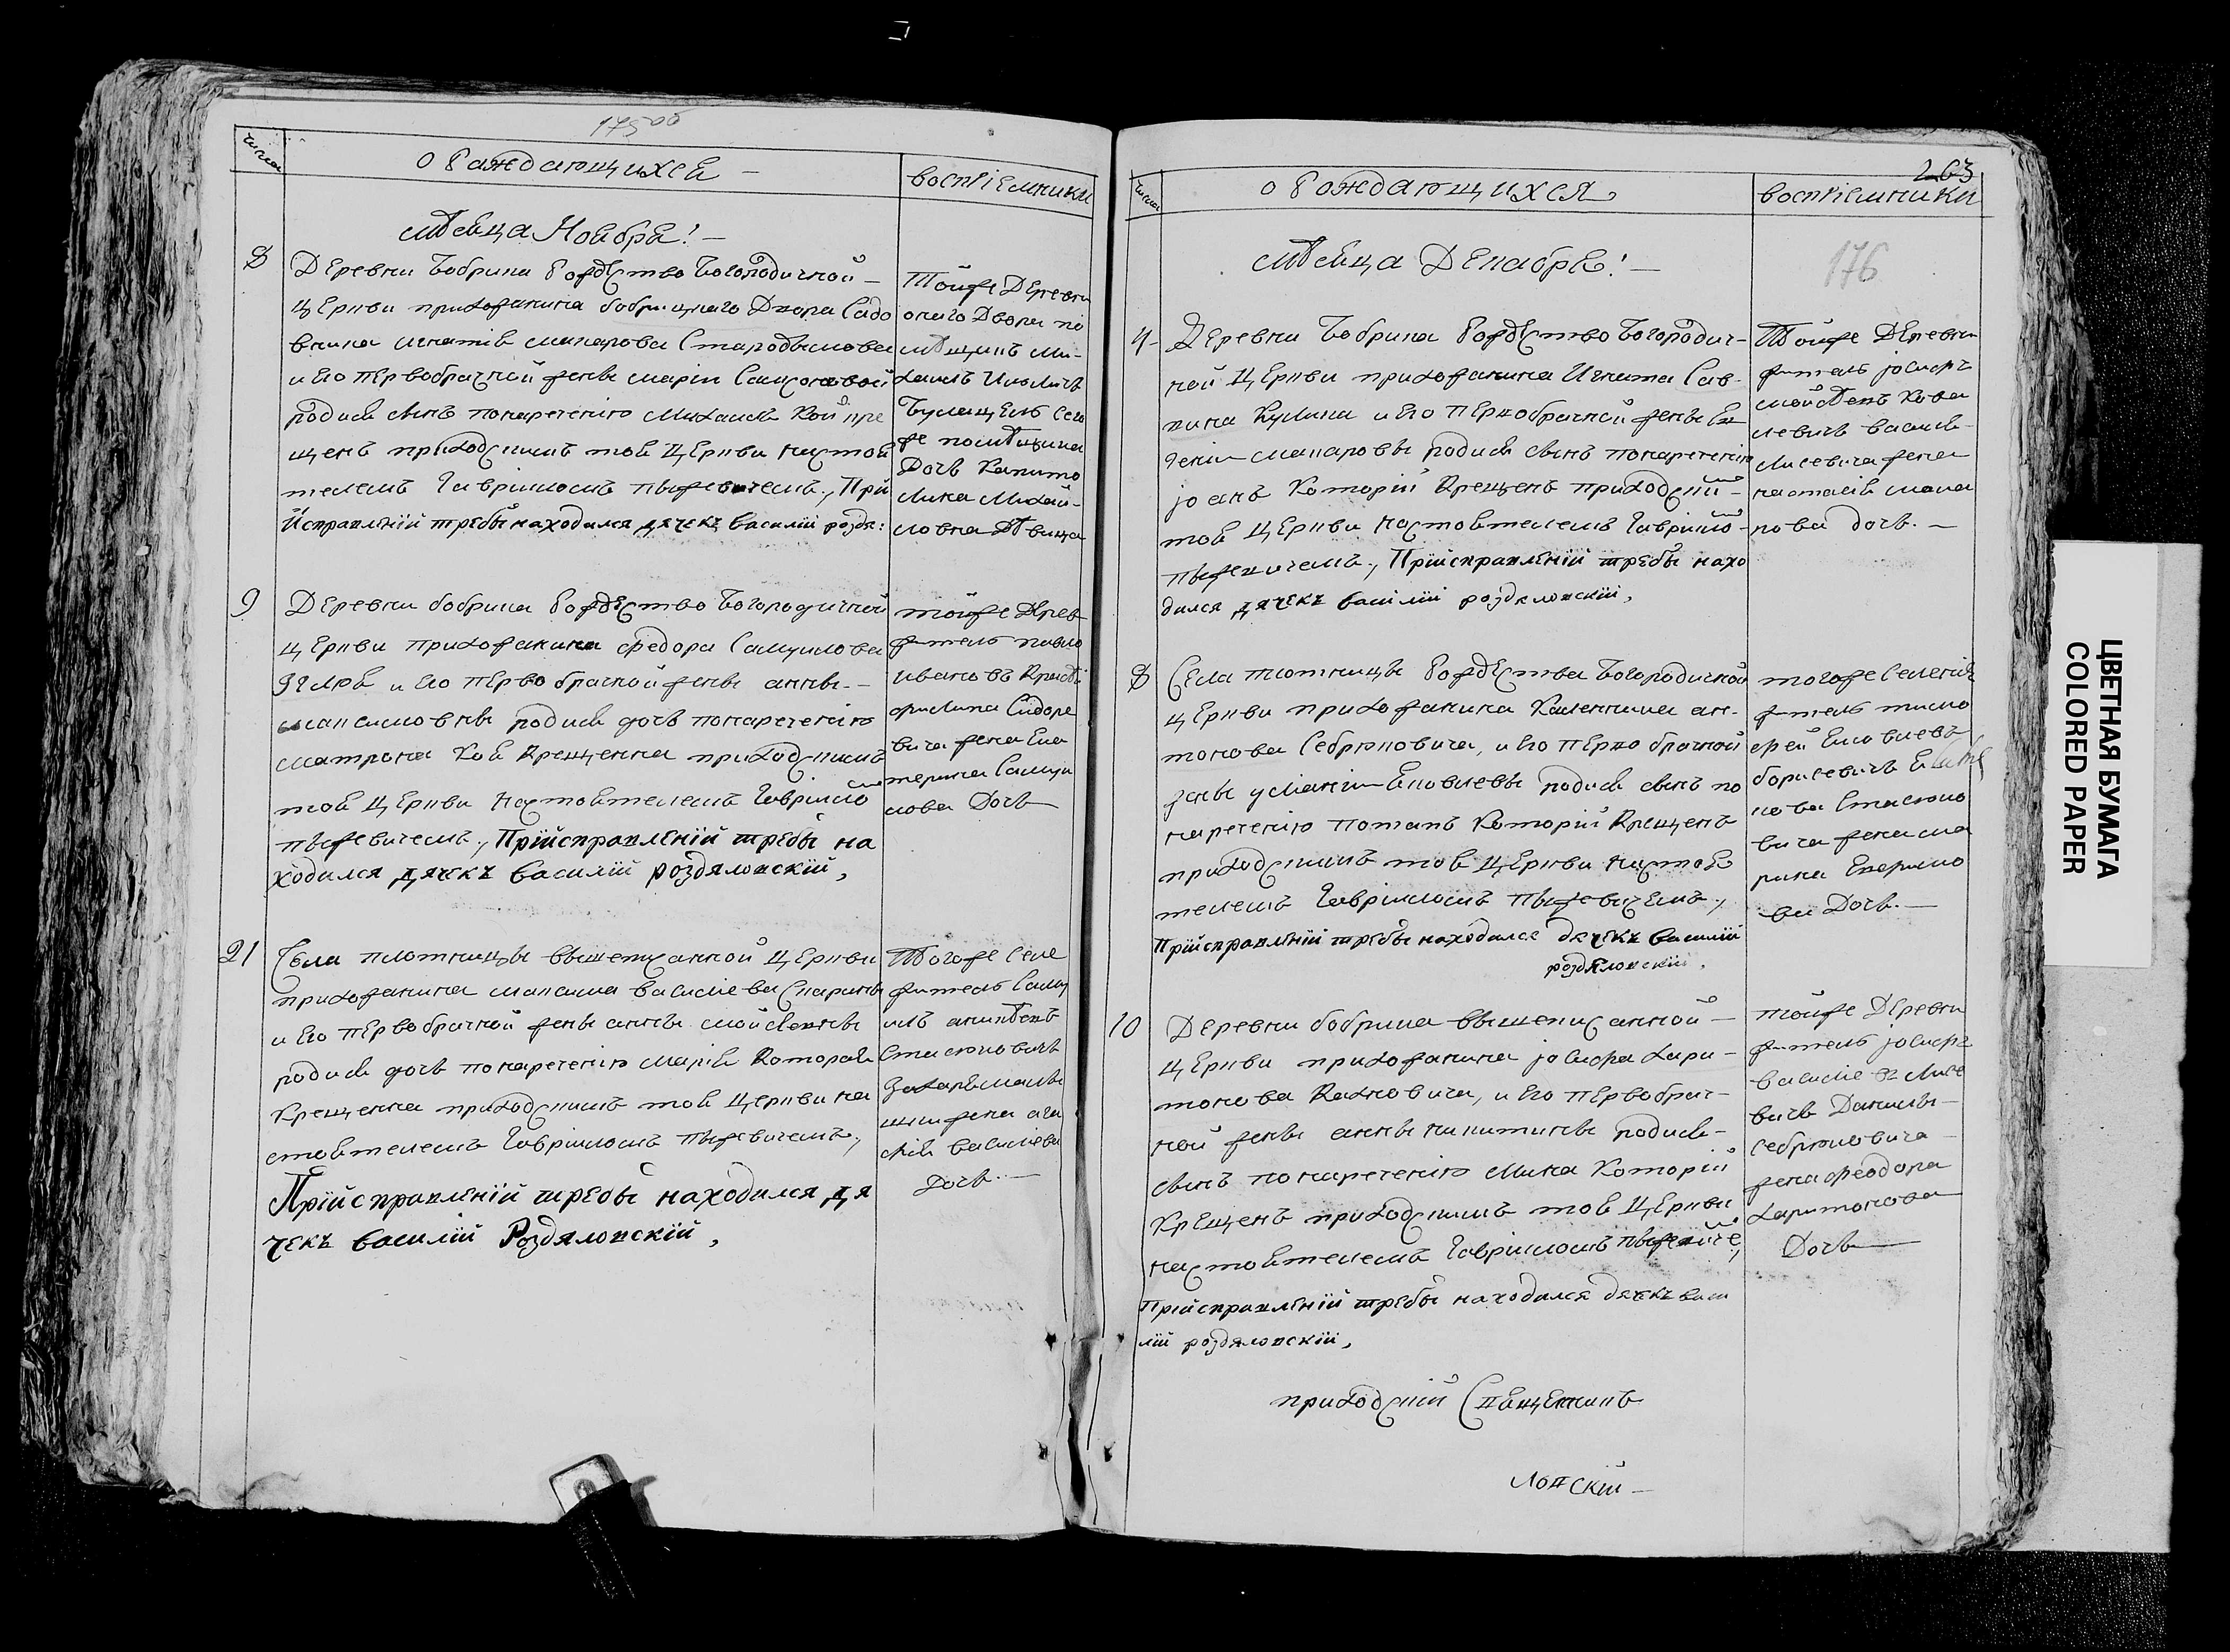 175об
числа
о Раждающихся
воспрiемники
мѣсяца Ноября!
8
Деревни Бобрика Рождество Богородичной
Церкви прихожанина бобрицкаго Двора Садо
вника Игнатiя Макарова Стародымова
и его первобрачной жены Марiи Самсоновой
родися сынъ понареченiю Михаилъ Кой кре
щенъ приходскимъ тоя Церкви настоя
телемъ Гаврiиломъ Пыжевичемъ, При
Исправленiй требы находился дячекъ Василiй роздя:
Тойже Деревни
онаго Двора по
мѣщикъ Ми-
хаилъ
Булгацель сего
же помѣщика
Дочь Капито
лина Михай-
ловна Дѣвица
9
Деревни бобрика Рождество Богородичной
Церкви прихожанина федора Самуилова
и его первобрачной жены анны
максимовны родися дочь понареченiю
матрона Коя Крещенна приходскимъ
тоя Церкви настоятелемъ Гаврiило
Пыжевичемъ, Прiисправленiй требы на
ходился дячекъ василiй роздяловскiй,
тойже Дерев
житель павло
ивановъ
Сидоре
вича жена Ека
терина Самуи
лова Дочь
21
Села плотницы вышеписанной Церкви
прихожанина максима василiева
и его первобрачной жены анны мойсѣевны
родися дочь понареченiю Марiя Которая
Крещенна приходскимъ тоя Церкви на
стоятелемъ Гаврiиломъ Пыжевичемъ,
Прiисправленiй требы находился дя
чекъ василiй Роздяловскiй,
Тогоже Села
житель Саму
илъ
Стасюковичъ
жена ага
василiева
Дочь
263
числа
о Рождающихся
воспрiемники
176
мѣсяца Декабря!
4
Деревни Бобрика Рождество Богородич-
ной Церкви прихожанина Игната Сав-
кина и его первобрачной жены Ев
генiи макаровы родися сынъ понареченiю
iоанъ Которiй Крещенъ приходскiй
тоя Церкви настоятелемъ Гаврiило
Пыжевичемъ, Прiисправленiй требы нахо
дился дячекъ василiй роздяловскiй,
Тойже Деревни
житель iосифъ
мойсѣевъ Кова
левичъ василя
Лисевича жена
настасiя мака
рова дочь.
8
Села плотницы Рождества Богородичной
Церкви прихожанина Калинника ан-
тонова Себрюковича, и его первобрачной
жены Яковлевы родися сынъ по
нареченiю потапъ Которiй Крещенъ
приходскимъ тоя Церкви настоя
телемъ Гаврiиломъ Пыжевичемъ,
Прiисправленiй требы находился дячекъ василiй
роздяловскiй.
тогоже Селенiя
житель тимо
фей Яковлевъ
борисевичъ
Стасюко
вича жена ма
рина
ва Дочь.
10
Деревни бобрика вышеписанной
Церкви прихожанина iосифа Хари-
тонова Вахновича, и его первобрач-
ной жены анны никитины родися
сынъ понареченiю Мина Которiй
Крещенъ приходскимъ тоя Церкви
настоятелемъ Гаврiиломъ Пыжевиче,
Прiисправленiй требы находился дячекъ васи
лiй роздяловскiй,
тойже Деревни
житель iосифъ
василiевъ Лисе
вичъ Данилы
себрюковича
жена феодора
Харитонова
Дочь
приходскiй Священникъ